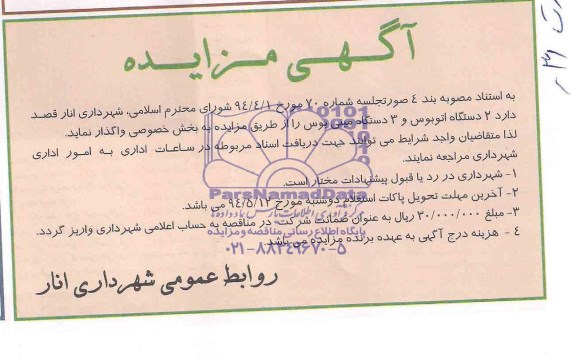 آگهی مزایده
به استناد مصوبه بند ٤ صورتجلسه شماره ٢٠ مورخ ٩٤/٤/١ شورای محترم اسلامی، شهرداری انار قصد
دارد ٢ دستگاه اتوبوس و ٣ دستگاه مینی بوس را از طریق مزایده به بخش خصوصی واگذار نماید.
لذا متقاضیان واجد شرایط می توانند جهت دریافت اسناد مربوطه در ساعات اداری به امور اداری
شهرداری مراجعه نمایند.
١- شهرداری در رد یا قبول پیشنهادات مختار است.
٢- آخرین مهلت تحویل پاکات استعلام دوشنبه مورخ ٩٤/٥/١٢ می باشد.
٣- مبلغ ٣٠/٠٠٠/٠٠٠ ریال به عنوان ضمانت شرکت در مناقصه به حساب اعلامی شهرداری واریز گردد.
٤ - هزینه درج آگهی به عهده برنده مزایده می باشد.
روابط عمومی شهرداری انار
ParsNamadData
پایگاه اطلاع رسانی مناقصه و مزایده
٠٢١-٨٨٣٤٩٦٧٠-٥